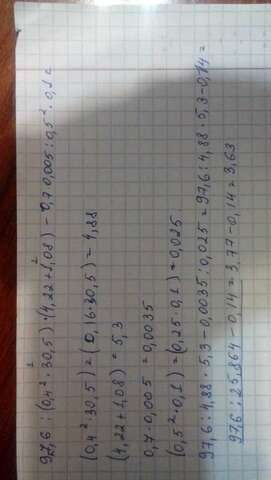 1 2
97,6 : (0,4² · 30,5) · (4,22+1,08) - 0,7·0,005 : 0,5² · 0,1 =
(0,4² · 30,5) = (0,16·30,5) = 4,88
(4,22+1,08) = 5,3
0,7·0,005 = 0,0035
(0,5²·0,1) = (0,25·0,1) = 0,025
97,6 : 4,88 · 5,3 - 0,0035 : 0,025 = 97,6 : 4,88 · 5,3 - 0,14 =
97,6 : 25,864 - 0,14 = 3,77 - 0,14 = 3,63